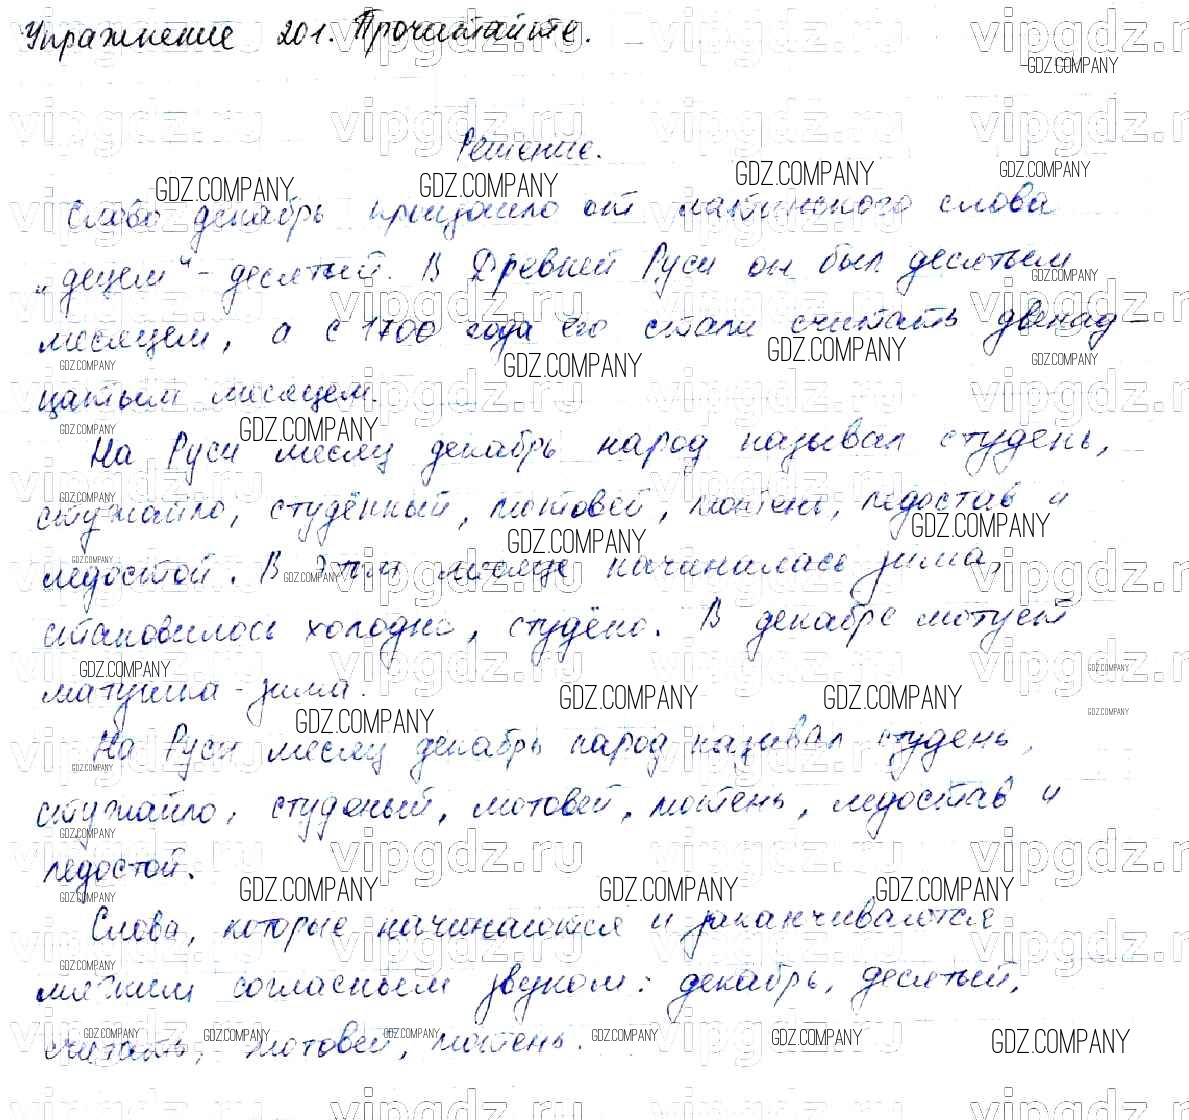 Упражнение 201. Прочитайте.
Решение.
Слово декабрь произошло от латинского слова
„децем“ - десятый. В Древней Руси он был десятым
месяцем, а с 1700 года его стали считать двенад-
цатым месяцем.
На Руси месяц декабрь народ называл студень,
стужайло, студённый, лютовей, лютень, ледостав и
ледостой. В этом месяце начиналась зима,
становилось холодно, студёно. В декабре лютует
матушка-зима.
На Руси месяц декабрь народ называл студень,
стужайло, студеный, лютовей, лютень, ледостав и
ледостой.
Слова, которые начинаются и заканчиваются
мягким согласным звуком: декабрь, десятый,
считать, лютовей, лютень.
vipgdz.ru
GDZ.COMPANY